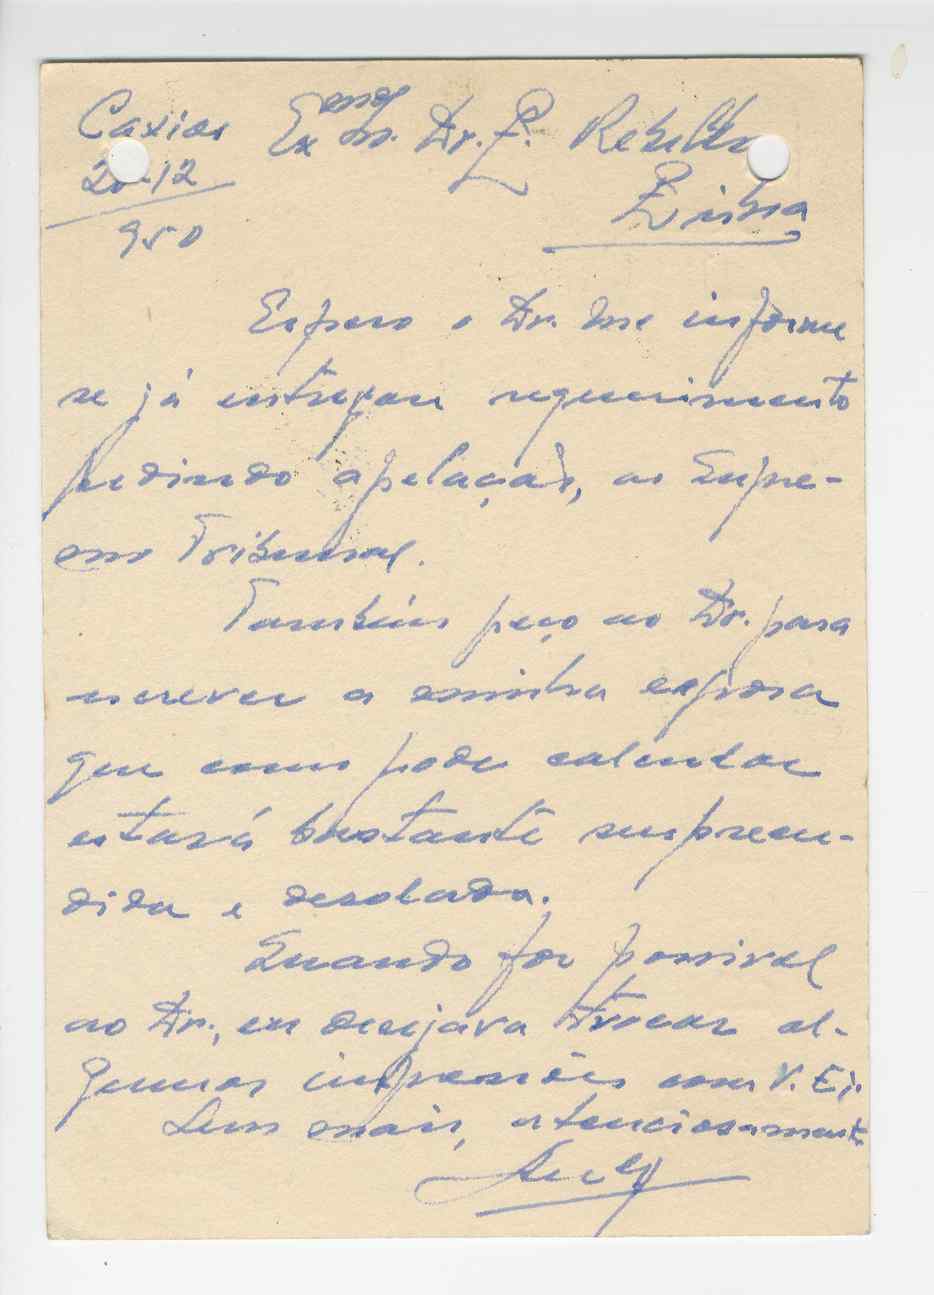 Caxias Ex.mo Sr. Dr. L. Rebello
-12 Lisboa
950
Espero o Dr. me informe
se já entregou requerimento
pedindo apelação, ao Supre-
mo Tribunal.
Também peço ao Dr. para
escrever a minha esposa
que como pode calcular
estará bastante surpreen-
dida e desolada.
Quando for possivel
ao Dr., eu desejava trocar al-
gumas impressões com V. Ex.
Sem mais, atenciosamente